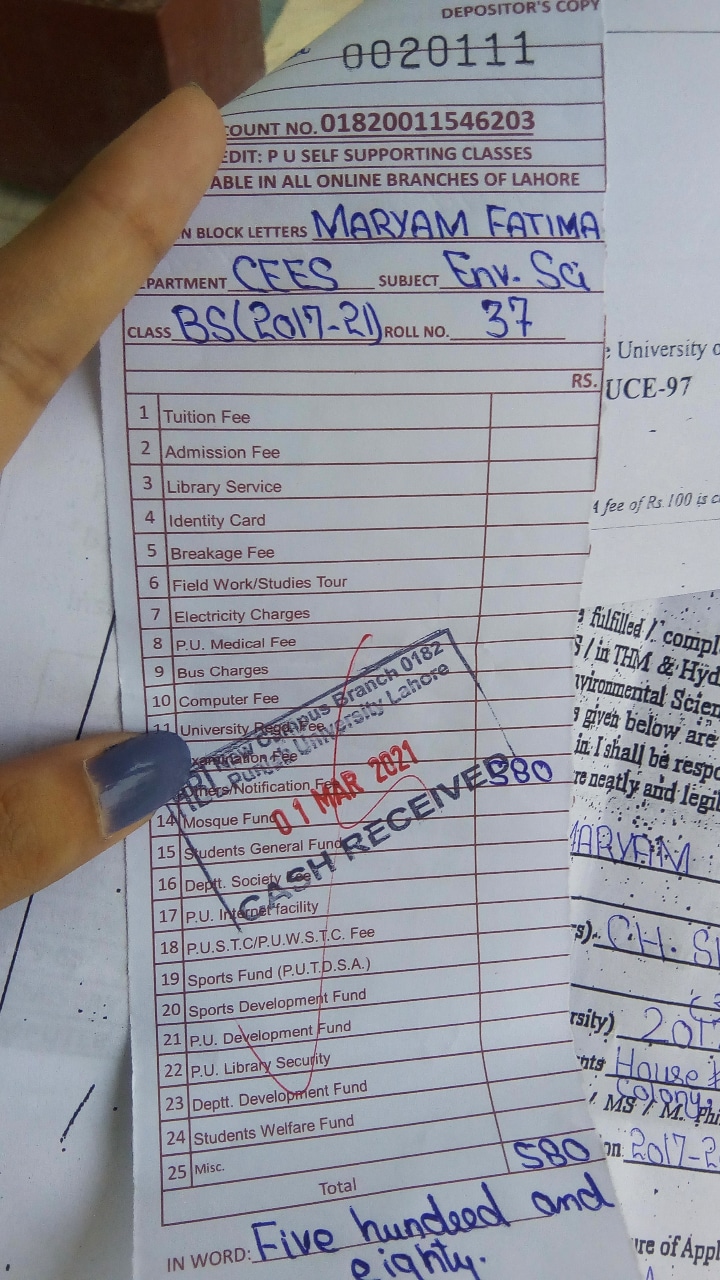 DEPOSITOR'S COPY
0020111
COUNT NO. 01820011546203
EDIT: P U SELF SUPPORTING CLASSES
ABLE IN ALL ONLINE BRANCHES OF LAHORE
N BLOCK LETTERS MARYAM FATIMA
PARTMENT CEES SUBJECT Env. Sci
CLASS BS(2017-21) ROLL NO. 37
RS.
1 Tuition Fee
2 Admission Fee
3 Library Service
4 Identity Card
5 Breakage Fee
6 Field Work/Studies Tour
7 Electricity Charges
8 P.U. Medical Fee
9 Bus Charges
10 Computer Fee
11 University Regd. Fee
Examination Fee
Others/Notification Fee 580
14 Mosque Fund
15 Students General Fund
16 Deptt. Society Fee
17 P.U. Internet facility
18 P.U.S.T.C/P.U.W.S.T.C. Fee
19 Sports Fund (P.U.T.D.S.A.)
20 Sports Development Fund
21 P.U. Development Fund
22 P.U. Library Security
23 Deptt. Development Fund
24 Students Welfare Fund
25 Misc.
Total 580
IN WORD: Five hundeed and
eighty.
New Campus Branch 0182
Punjab University Lahore
01 MAR 2021
CASH RECEIVED
University o
UCE-97
fee of Rs.100 is
fulfilled / compl
/ in THM & Hyd
vironmental Scien
given below are
in. I shall be respo
re neatly and legi
MARYAM
CH. S
rsity) 201
nts House #
Colony,
/ MS / M. Phi
on 2017-2
ure of Appl